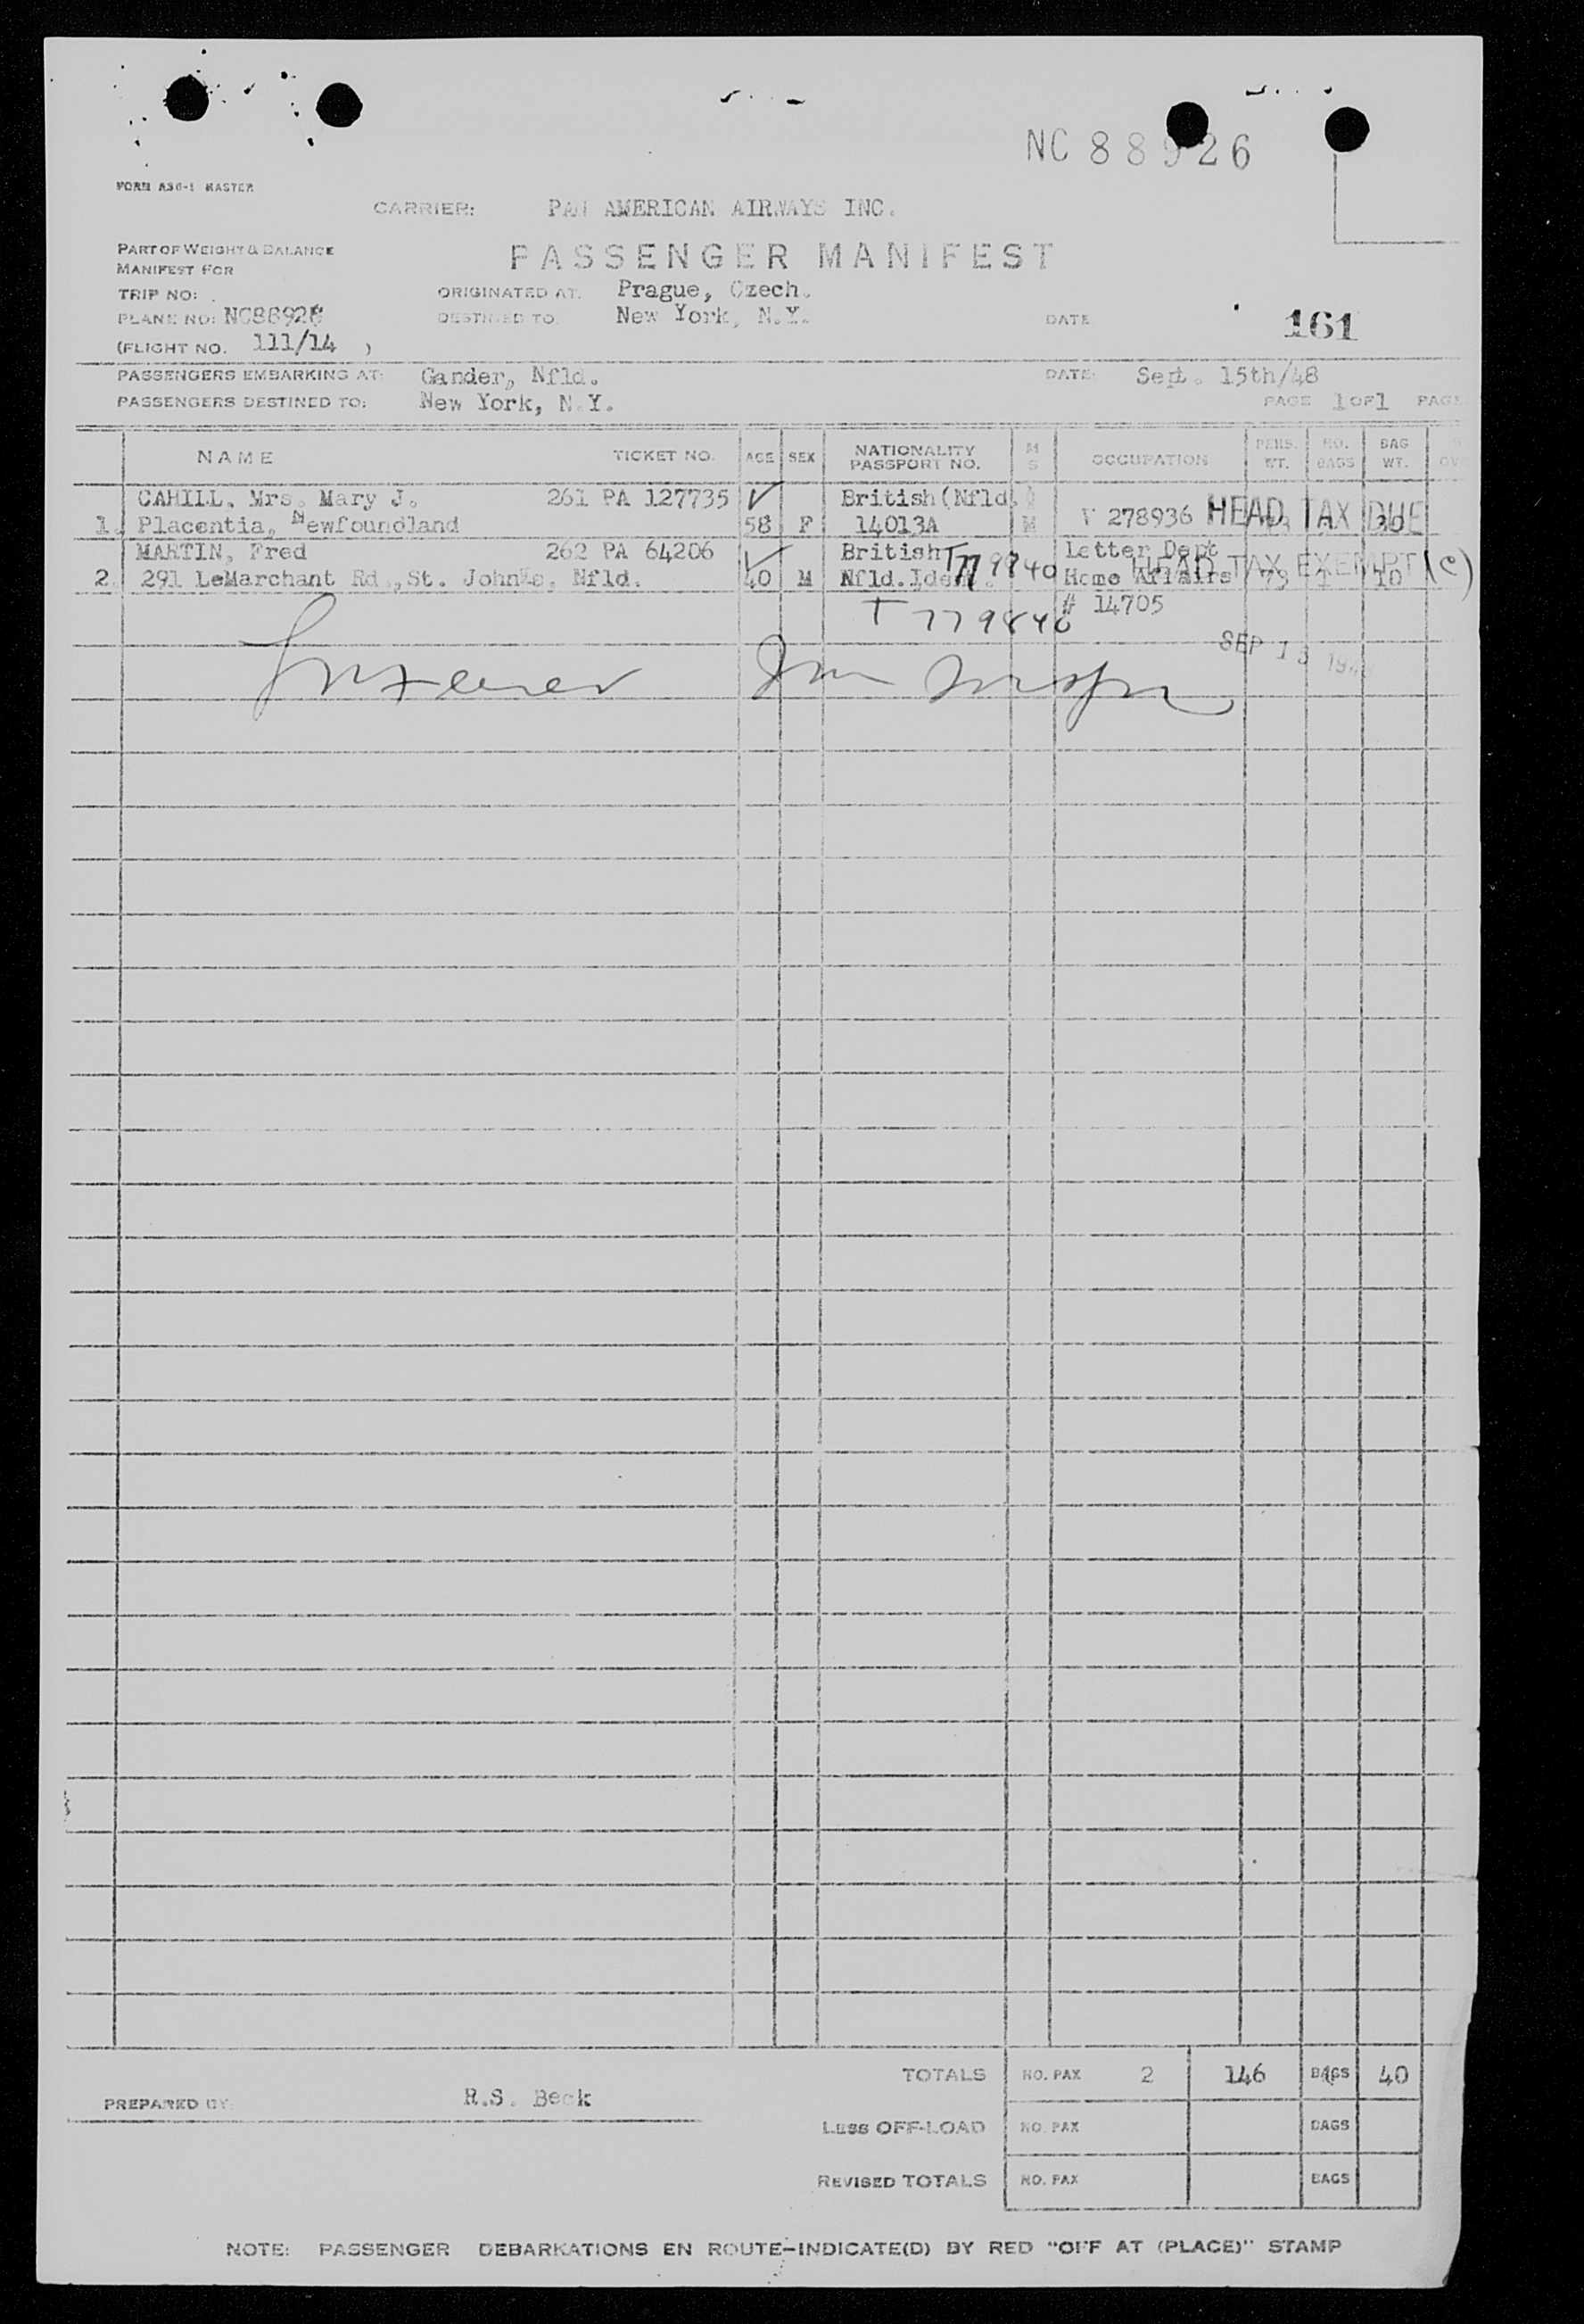 NC 88926
FORM A36-1 MASTER
CARRIER: PAN AMERICAN AIRWAYS INC.
PART OF WEIGHT & BALANCE
MANIFEST FOR
PASSENGER MANIFEST
TRIP NO: ORIGINATED AT: Prague, Czech.
PLANE NO: NC88926 DESTINED TO: New York, N.Y. DATE 161
(FLIGHT NO. 111/14 )
PASSENGERS EMBARKING AT: Gander, Nfld. DATE: Sept. 15th/48
PASSENGERS DESTINED TO: New York, N.Y. PAGE 1 OF 1 PAGE
NAME TICKET NO. AGE SEX NATIONALITY PASSPORT NO. M S OCCUPATION PERS. WT. NO. BAGS BAG WT.
CAHILL, Mrs. Mary J. 261 PA 127735 British(Nfld.)
1. Placentia, Newfoundland 58 F 14013A M V 278936 HEAD TAX DUE 30
MARTIN, Fred 262 PA 64206 British T779840 Letter Dept
2. 291 LeMarchant Rd.,St. John's, Nfld. 40 M Nfld.Iden. Home Affairs HEAD TAX EXEMPT 73 1 10 (C)
T 779840 # 14705
SEP 15
TOTALS NO. PAX 2 146 BAGS 40
PREPARED BY: R.S. Beck
LESS OFF-LOAD NO. PAX BAGS
REVISED TOTALS NO. PAX BAGS
NOTE: PASSENGER DEBARKATIONS EN ROUTE-INDICATE(D) BY RED "OFF AT (PLACE)" STAMP